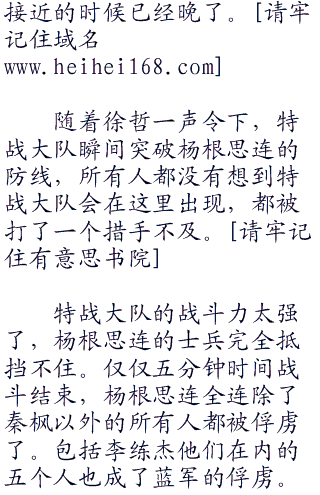 接近的时候已经晚了。[请牢
记住域名
www.heihei168.com]
随着徐哲一声令下，特
战大队瞬间突破杨根思连的
防线，所有人都没有想到特
战大队会在这里出现，都被
打了一个措手不及。[请牢记
住有意思书院]
特战大队的战斗力太强
了，杨根思连的士兵完全抵
挡不住。仅仅五分钟时间战
斗结束，杨根思连全连除了
秦枫以外的所有人都被俘虏
了。包括李练杰他们在内的
五个人也成了蓝军的俘虏。